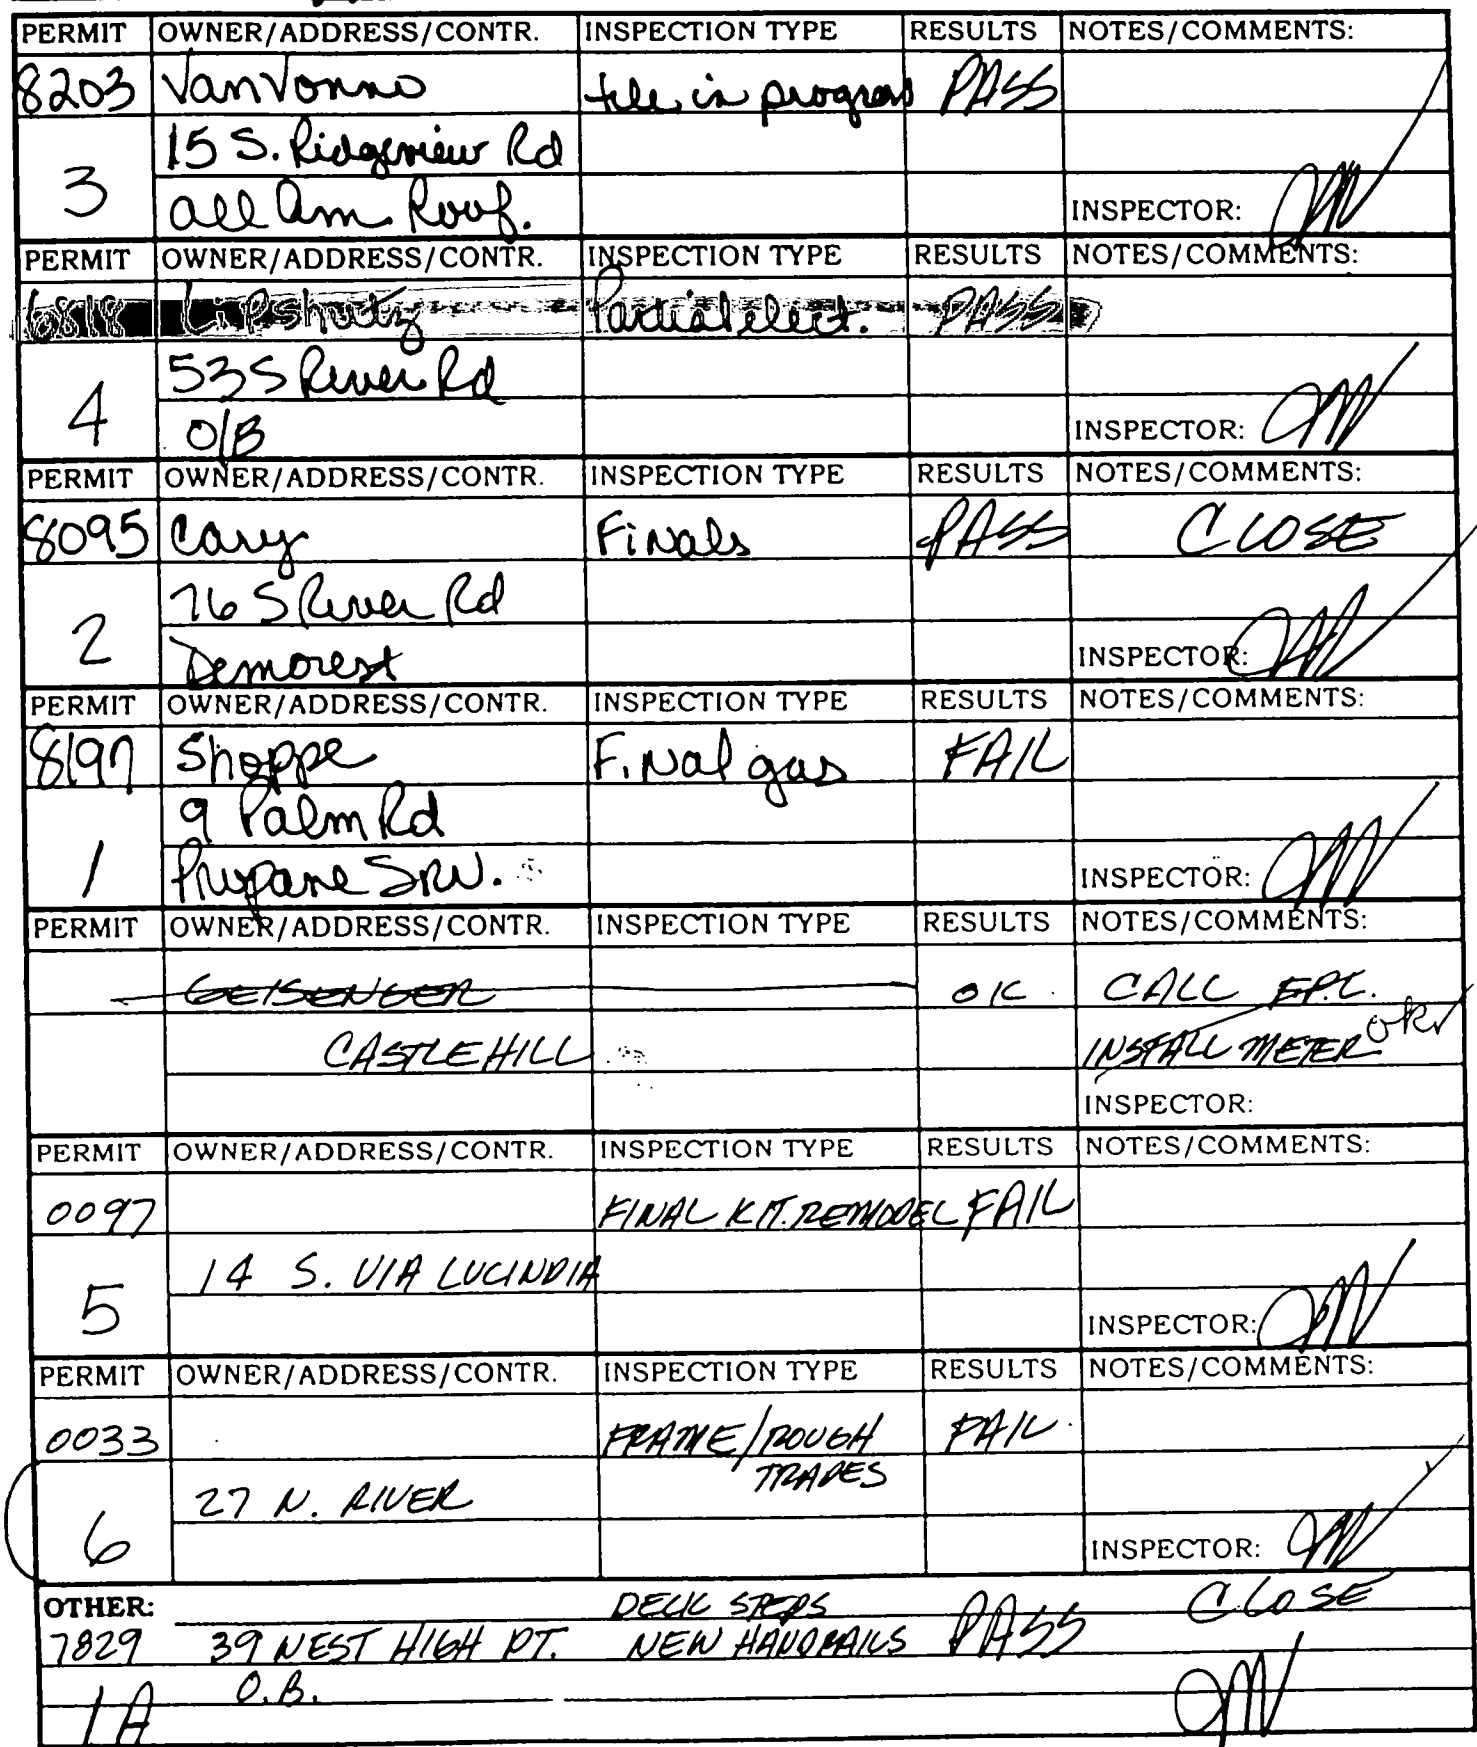 PERMIT OWNER/ADDRESS/CONTR. INSPECTION TYPE RESULTS NOTES/COMMENTS:
8203 VanVonno tile in progress PASS
15 S. Ridgeview Rd
3 All Am Roof. INSPECTOR:
PERMIT OWNER/ADDRESS/CONTR. INSPECTION TYPE RESULTS NOTES/COMMENTS:
6818 Lipshutz Partial elect. PASS
53 S River Rd
4 O/B INSPECTOR:
PERMIT OWNER/ADDRESS/CONTR. INSPECTION TYPE RESULTS NOTES/COMMENTS:
8095 Cary Finals PASS CLOSE
76 S River Rd
2 Demorest INSPECTOR:
PERMIT OWNER/ADDRESS/CONTR. INSPECTION TYPE RESULTS NOTES/COMMENTS:
8197 Shoppe Final gas FAIL
9 Palm Rd
1 Propane Srv. INSPECTOR:
PERMIT OWNER/ADDRESS/CONTR. INSPECTION TYPE RESULTS NOTES/COMMENTS:
GEISENGER OK CALL F.P.L.
CASTLE HILL INSTALL METER OK
INSPECTOR:
PERMIT OWNER/ADDRESS/CONTR. INSPECTION TYPE RESULTS NOTES/COMMENTS:
0097 FINAL KIT. REMODEL FAIL
14 S. VIA LUCINDIA
5 INSPECTOR:
PERMIT OWNER/ADDRESS/CONTR. INSPECTION TYPE RESULTS NOTES/COMMENTS:
0033 FRAME/ROUGH FAIL
TRADES
27 N. RIVER
6 INSPECTOR:
OTHER: DECK STEPS CLOSE
7829 39 W EST HIGH PT. NEW HANDRAILS PASS
1A O.B.